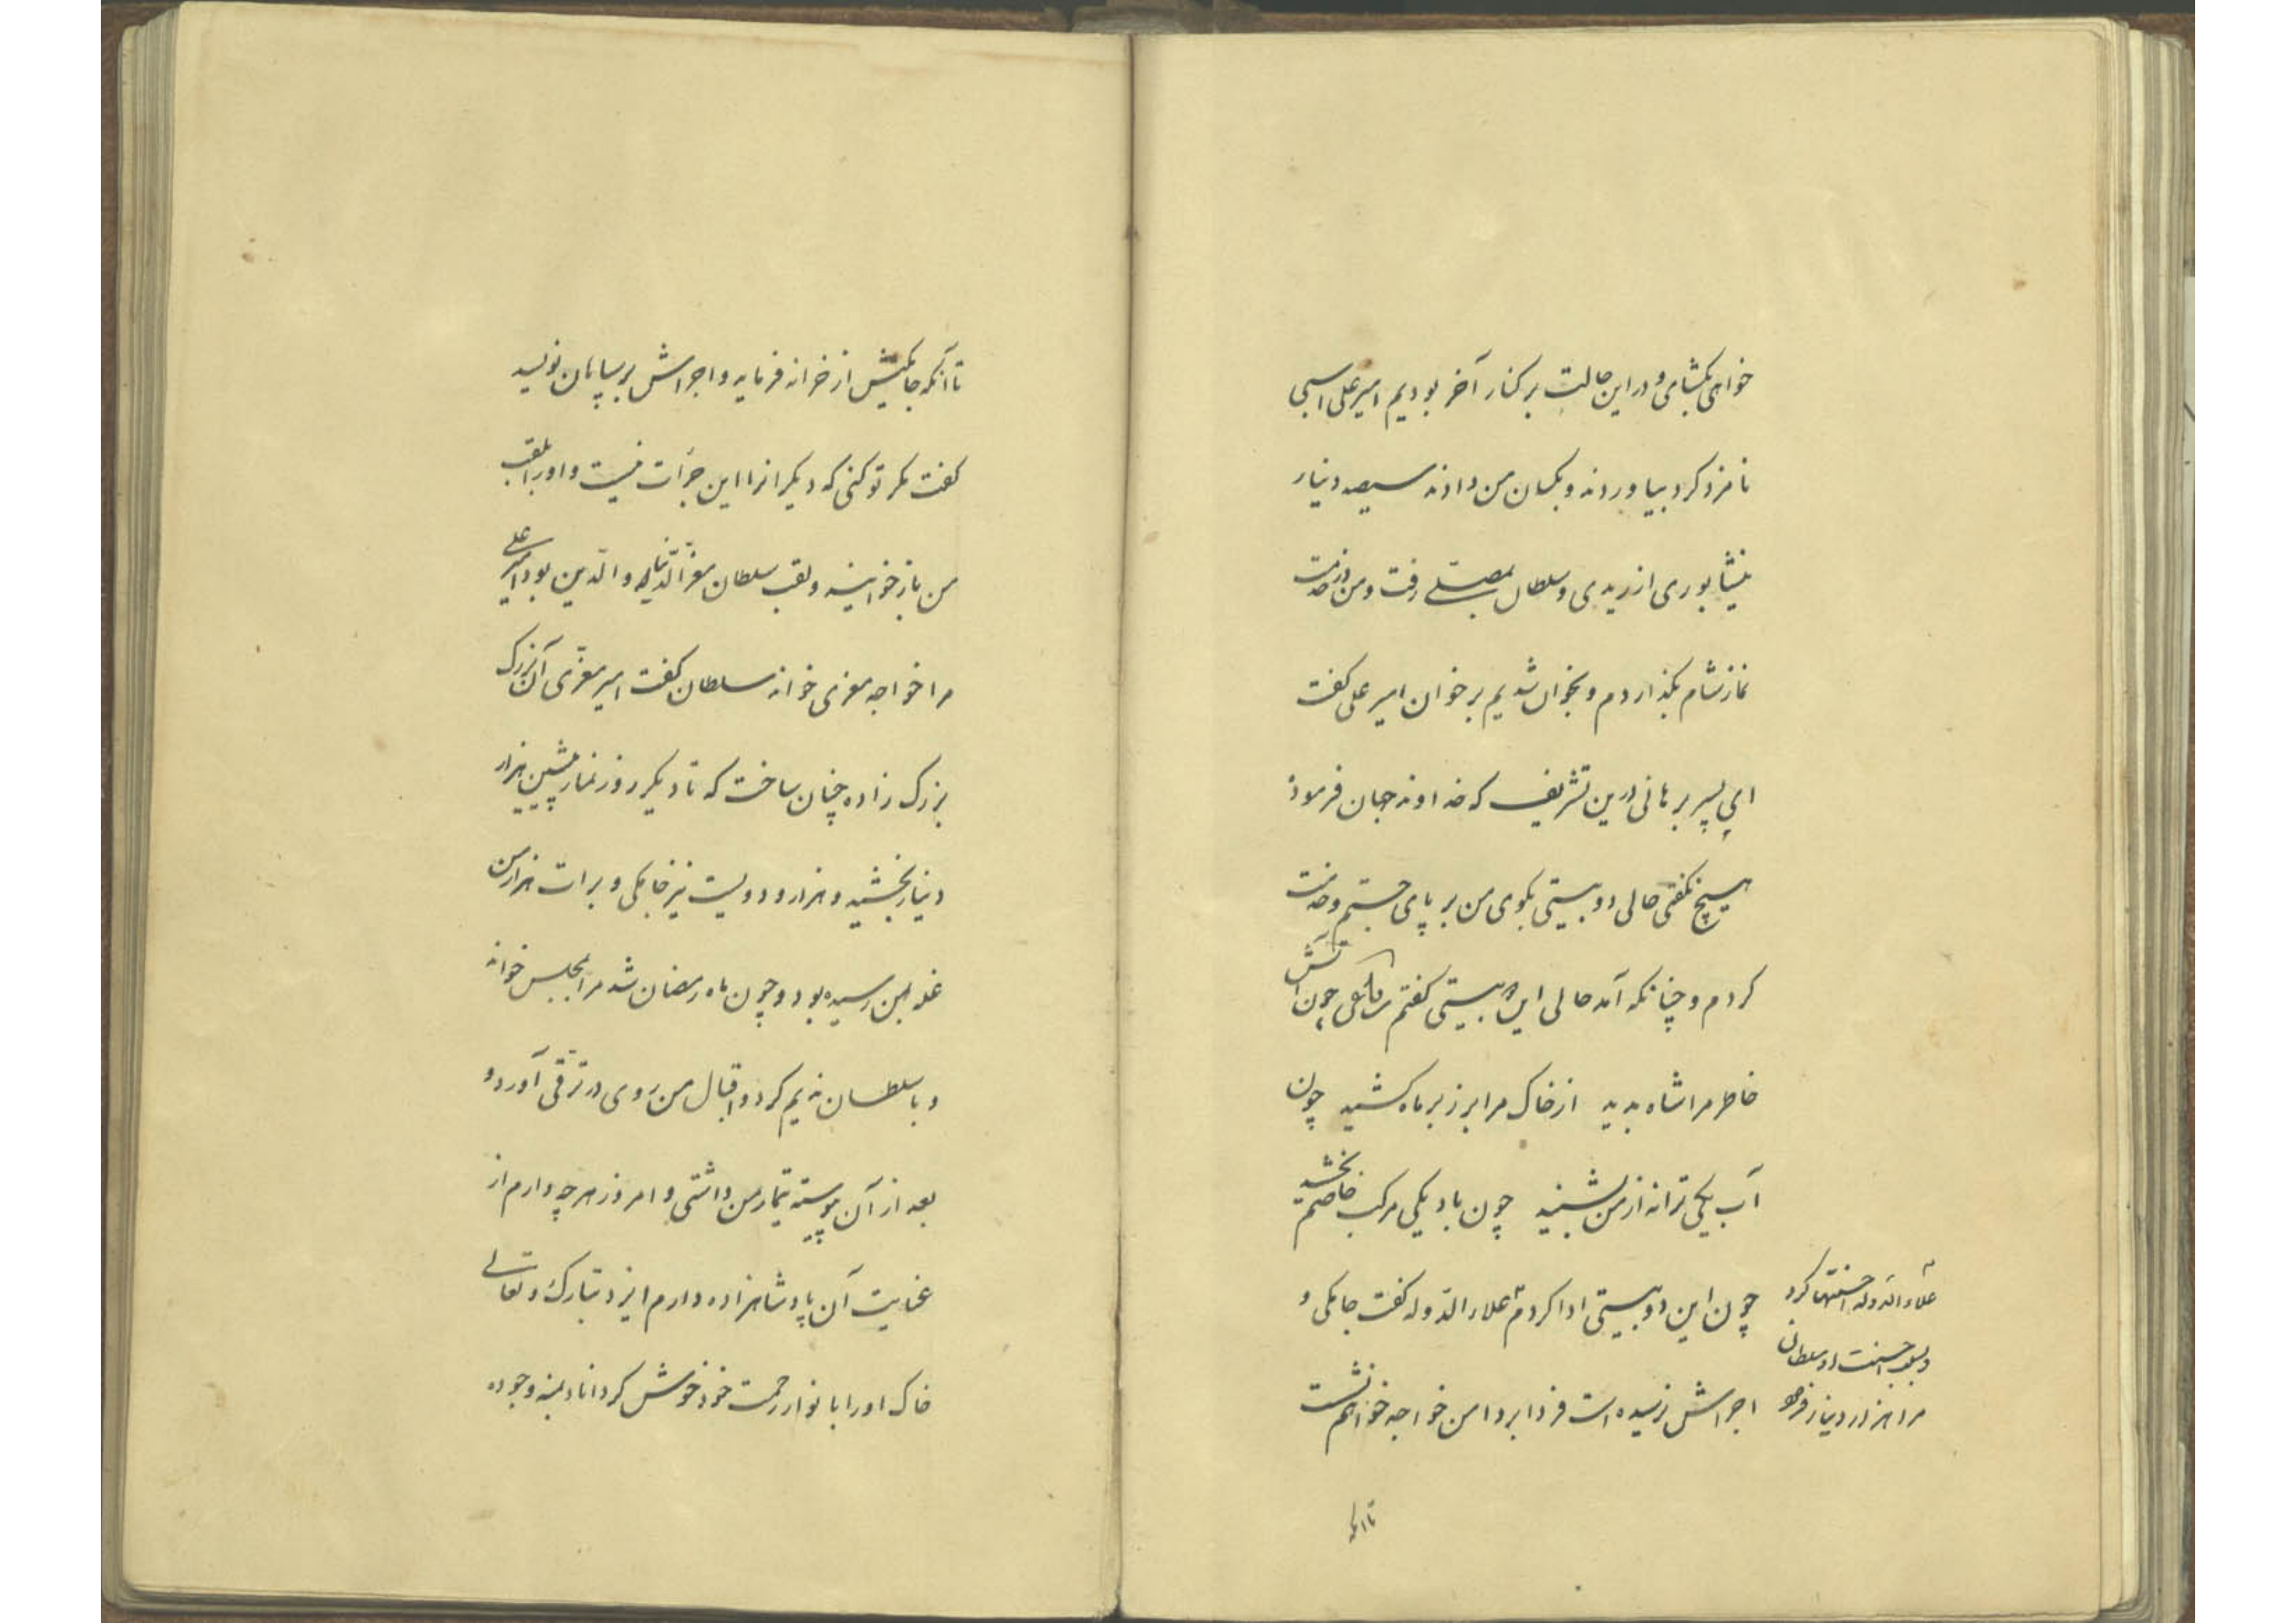 خواهی بکشای و در این حالت بر کنار آخر بودیم امیر علی اسبی
نامزد کرد بیاوردند و بکسان من دادند سیصد دینار
نیشابوری ارزیدی و سلطان بمصلی رفت و من در خدمت
نماز شام بگذاردم و بخوان شدیم بر خوان امیر علی گفت
ای پسر برهانی درین تشریف که خداوند جهان فرمود
هیچ نگفتی حالی دو بیتی بگوی من بر پای جستم و خدمت
کردم و چنانکه آمد حالی این دو بیتی گفتم رباعی چون آتش
خاطر مرا شاه بدید از خاک مرا بر زبر ماه کشید چون
آب یکی ترانه از من بشنید چون باد یکی مرکب خاصم بخشید
چون این دو بیتی ادا کردم علاء الدوله گفت جامکی و
اجراش نرسیده است فردا بر دامن خواجه خواهم نشست
علاء الدوله احسنتها کرد
و بسبب احسنت او سلطان
مرا هزار دینار فرمود
تا آنکه
تا آنکه جامکیش از خزانه فرماید و اجراش بر سپاهان نویسد
گفت مگر تو کنی که دیگرانرا این جرأت نیست و او را بلقب
من باز خوانید و لقب سلطان معز الدنیا و الدین بود امیر علی
مرا خواجه معزی خواند سلطان گفت امیر معزی آن بزرگ
بزرگ زاده چنان ساخت که تا دیگر روز نماز پیشین هزار
دینار بخشید و هزار و دویست نیز جامکی و برات هزار من
غله بمن رسیده بود و چون ماه رمضان شد مرا بمجلس خواند
و با سلطان ندیم کرد و اقبال من روی در ترقی آورد و
بعد از آن پیوسته تیمار من داشتی و امروز هرچه دارم از
عنایت آن پادشاهزاده دارم ایزد تبارک و تعالی
خاک او را با نوار رحمت خود خوش گرداناد بمنه وجوده